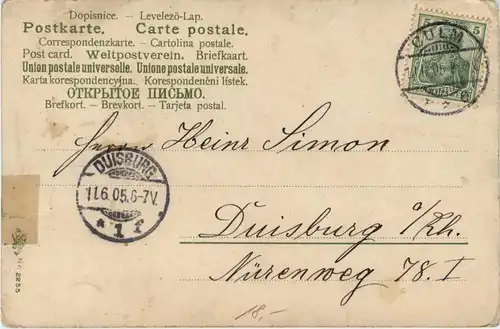 Dopisnice. — Levelező-Lap.
Postkarte. Carte postale.
Correspondenzkarte. — Cartolina postale.
Post card. Weltpostverein. Briefkaart.
Union postale universelle. Unione postale universale.
Karta korespondencyjna. Korespondenčni listek.
ОТКРЫТОЕ ПИСЬМО.
Brefkort. — Brevkort. — Tarjeta postal.
5
CULM
Herrn Heinr Simon
DUISBURG
11.6.05.6-7V.
* 1 f
Duisburg a/Rh.
Nürenweg 78. I
No 2255
18,-